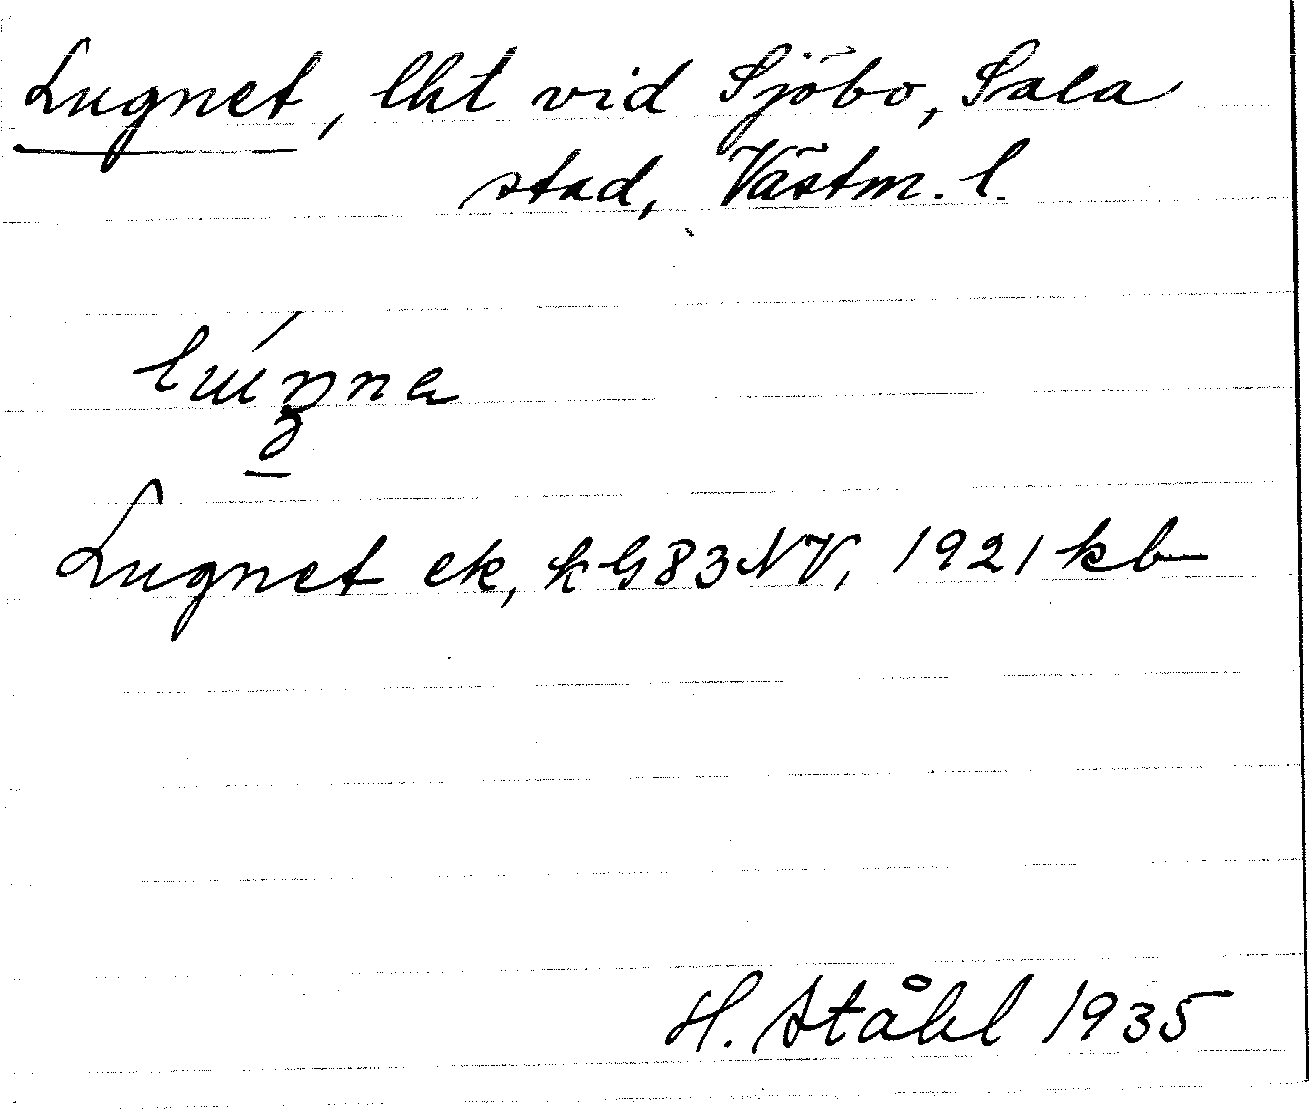 Lugnet, lht vid Sjöbo, Sala
stad, Västm. l.
Lugnet ek, kG83NV, 1921 kb
H. Ståhl 1935